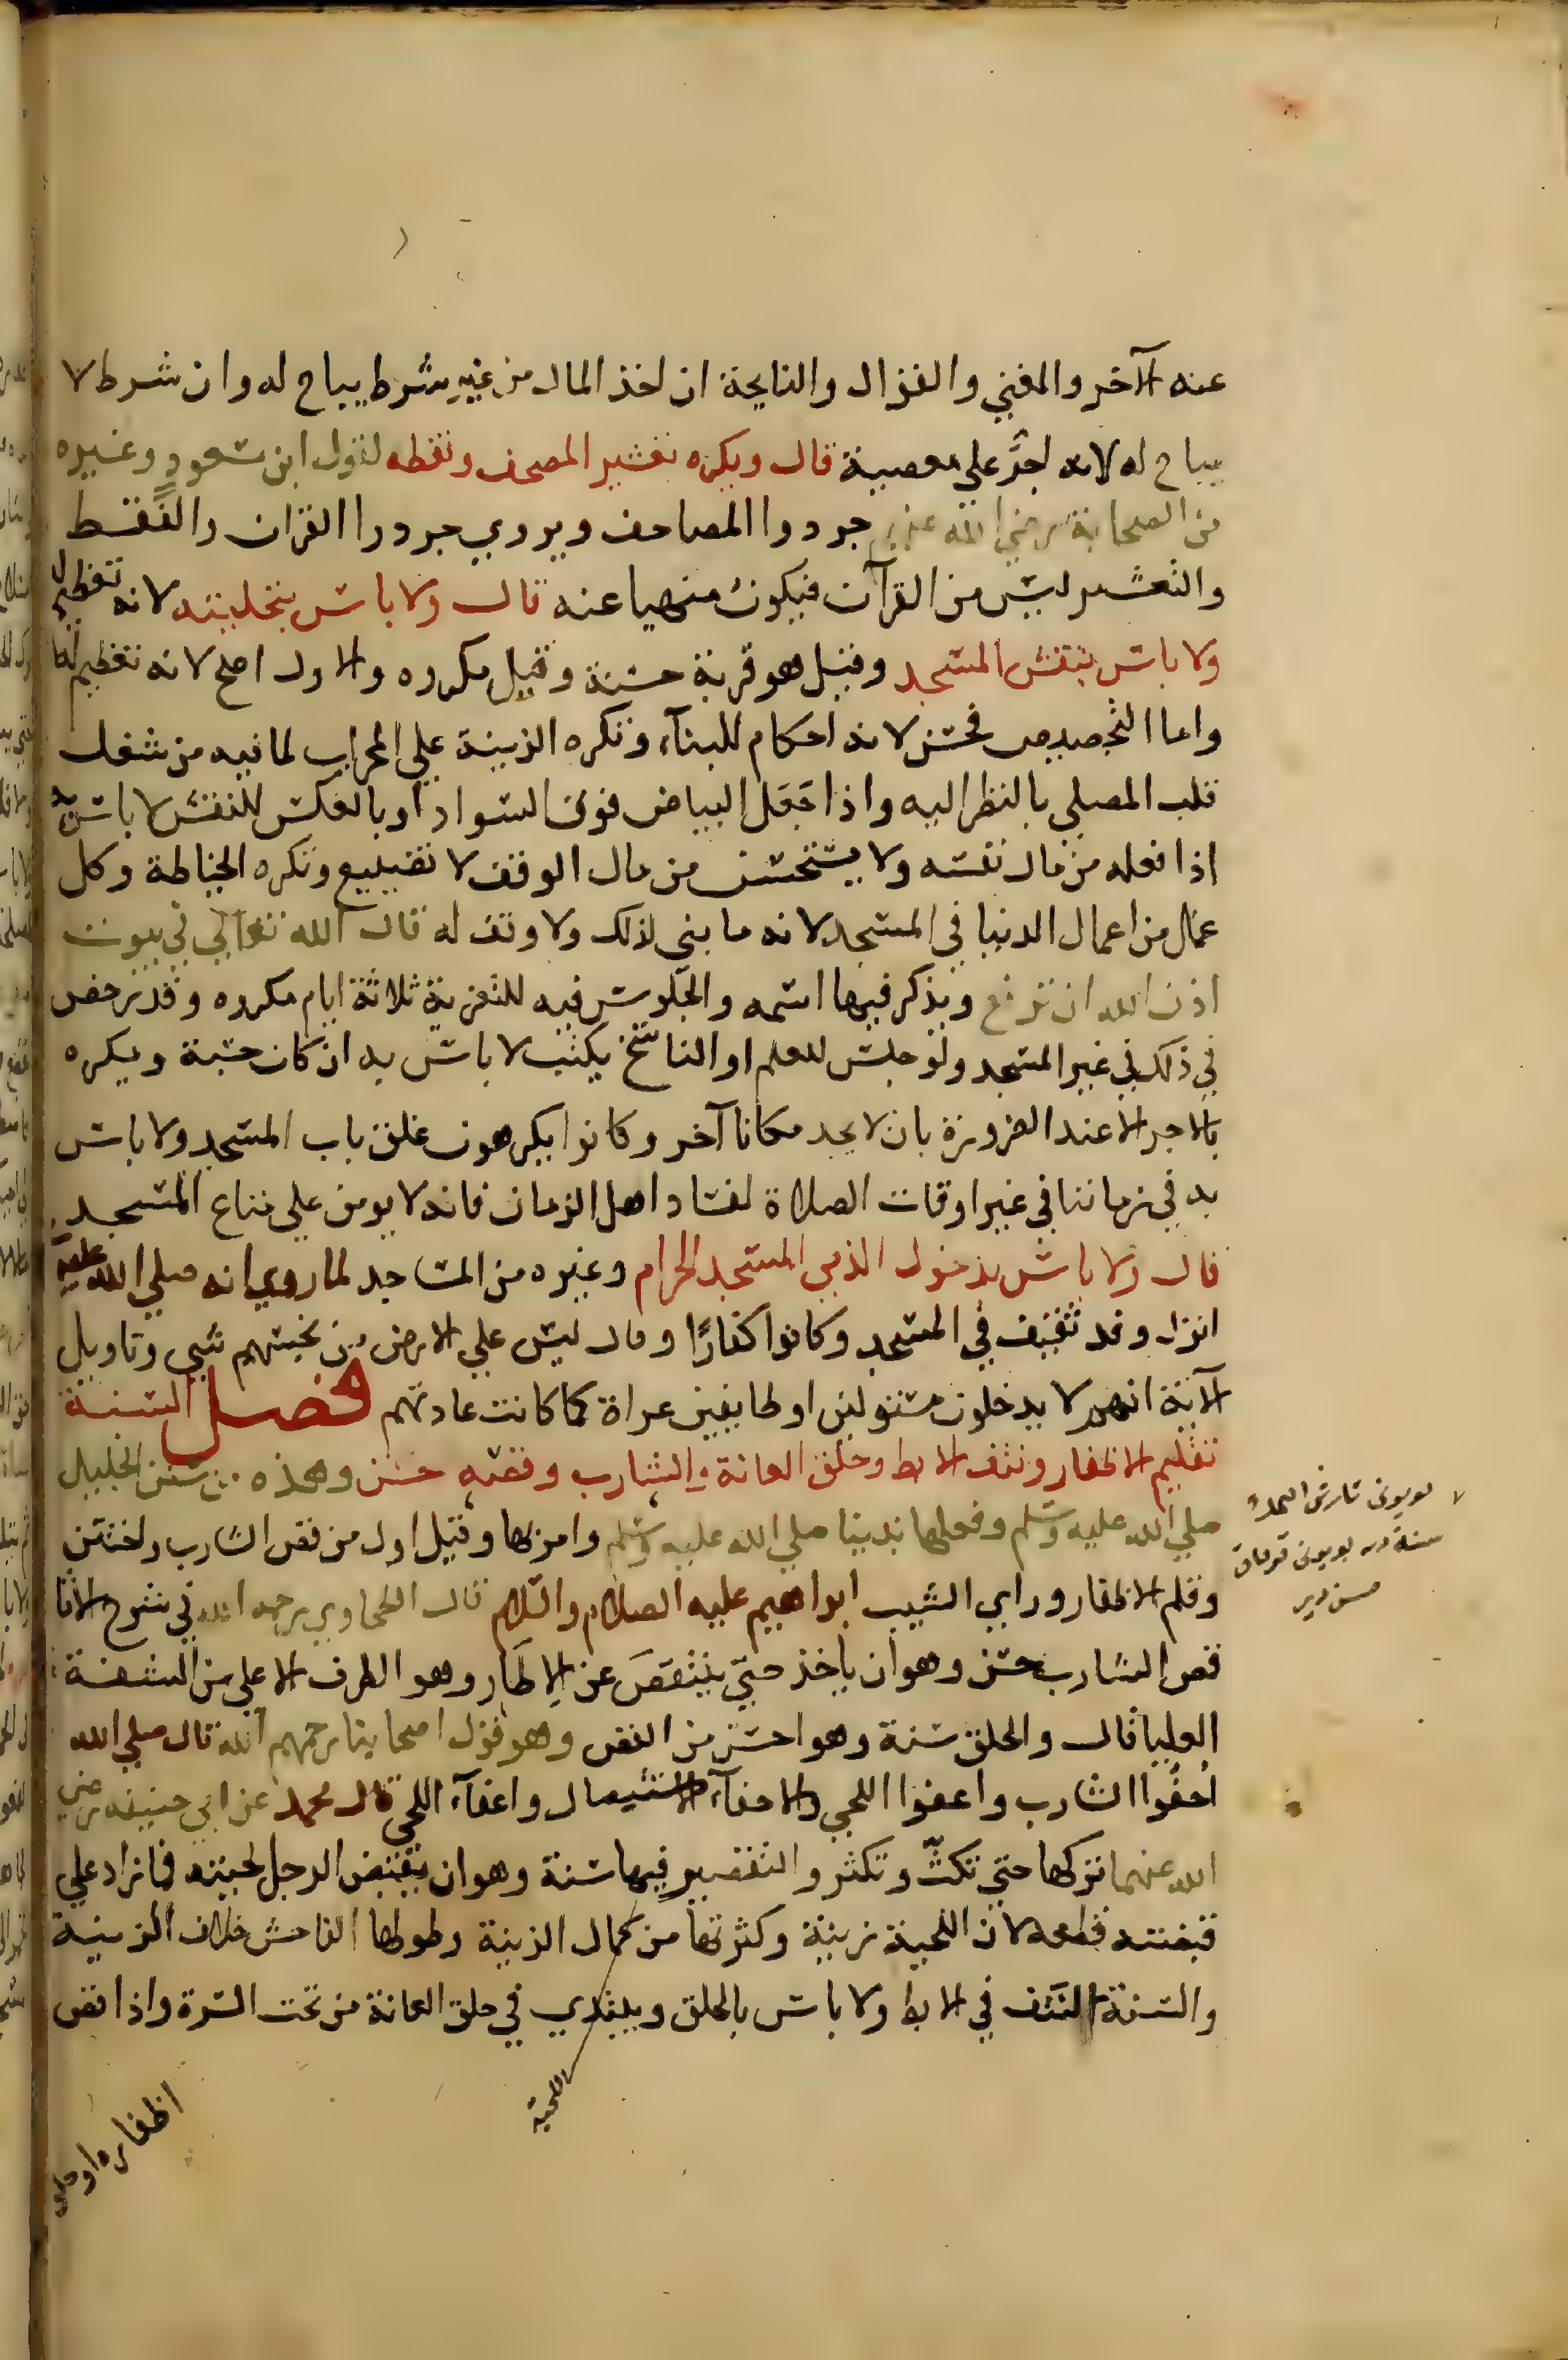 عنه الآخر والمغني والقوال والنايحة ان اخذ المال من غير شرط يباح له وان شرط لا
يباح له لانه اجر على معصية قال ويكره تعشير المصحف ونقطه لقول ابن مسعود وغيره
من الصحابة رضي الله عنهم جردوا المصاحف ويروي جردوا القران والنقط
والتعشير ليس من القرآن فيكون منهيا عنه قال ولا باس بتحليته لانه تعظيم له
ولا باس بنقش المسجد وقيل هو قربة حسنة وقيل مكروه والاول اصح لانه تعظيم له
واما التجصيص فحسن لانه احكام للبنآء وتكره الزينة علي المحراب لما فيه من شغل
قلب المصلي بالنظر اليه واذا جعل البياض فوق السواد او بالعكس للنقش لا باس به
اذا فعله من مال نفسه ولا يستحسن من مال الوقف لا تضييع وتكره الخياطة وكل
عمل من اعمال الدنيا في المسجد لانه ما بني لذلك ولا وقف له قال الله تعالي في بيوت
اذن الله ان ترفع ويذكر فيها اسمه والجلوس فيه للتعزية ثلاثة ايام مكروه وقد رخص
في ذلك في غير المسجد ولو جلس للعلم او الناسخ يكتب لا باس به ان كان حسبة ويكره
بالاجر الا عند الضرورة بان لا يجد مكانا آخر وكانوا يكرهون غلق باب المسجد ولا باس
به في زماننا في غير اوقات الصلاة لفساد اهل الزمان فانه لا يومن علي متاع المسجد
قال ولا باس بدخول الذمي المسجد الحرام وغيره من المساجد لما روي انه صلي الله عليه
انزل وفد ثقيف في المسجد وكانوا كفارًا وقال ليس علي الارض من نجسهم شي وتاويل
الآية انهم لا يدخلون مستولين او طايفين عراة كما كانت عادتهم فصل السنة
تقليم الاظفار ونتف الابط وحلق العانة والشارب وقصه حسن وهذه من سنن الخليل
صلي الله عليه وسلم وفعلها نبينا صلي الله عليه وسلم وامر بها وقيل اول من قص الشارب واختتن
وقلم الاظفار وراي الشيب ابراهيم عليه الصلام والسلام قال الطحاوي رحمه الله في شرح الاثا
قص الشارب حسن وهو ان ياخذ حتي ينتقص عن الاطار وهو الطرف الاعلي من الشفة
العليا قال والحلق سنة وهو احسن من القص وهو قول اصحابنا رحمهم الله قال صلي الله
احفوا الشارب واعفوا اللحي والاحفآء الاستيصال واعفآء اللحي قال محمد عن ابي حنيفه رضي
الله عنهما تركها حتي تكثّ وتكثر والتقصير فيها سنة وهو ان يقبض الرجل لحيته فما زاد علي
قبضته قطعه لان اللحية زينة وكثرتها من كمال الزينة وطولها الفاحش خلاف الزينة
والسنة النتف في الابط ولا باس بالحلق ويبتدي في حلق العانة من تحت السرة واذا قص
اللحية
اظفاره او حلق